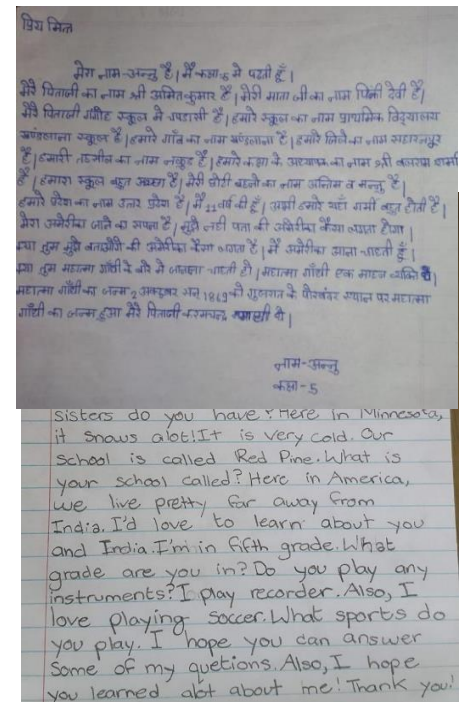 प्रिय मित्र
मेरा नाम-अन्नु है। मैं कक्षा 5 मे पढती हूँ।
मेरे पिताजी का नाम श्री अमितकुमार है। मेरी माता जी का नाम पिंकी देवी है।
मेरे पिताजी स्कूल मे चपडासी है। हमारे स्कूल का नाम प्राथमिक विद्यालय
खण्डलाना स्कूल है। हमारे गाँव का नाम खण्डलाना है। हमारे जिले का नाम सहारनपुर
है। हमारी तहसील का नाम नकुड है। हमारे कक्षा के अध्यापक का नाम श्री शर्मा
है। हमारा स्कूल बहुत अच्छा है। मेरी छोटी बहनो का नाम अन्तिम व मन्नु है।
हमारे प्रदेश का नाम उत्तर प्रदेश है। मैं 11 वर्ष की हूँ। अभी हमारे यहाँ गर्मी बहुत होती है।
मेरा अमेरिका जाने का सपना है। मुझे नही पता की अमेरिका कैसा होगा।
क्या तुम मुझे बताओगी की अमेरिका कैसा है। मैं अमेरिका आना चाहती हूँ।
क्या तुम महात्मा गाँधी के बारे मे जानना चाहती हो। महात्मा गाँधी एक महान व्यक्ति थे।
महात्मा गाँधी का जन्म 2 अक्टूबर सन् 1869 को गुजरात के पोरबंदर स्थान पर महात्मा
गाँधी का जन्म हुआ मेरे पिताजी करमचन्द गाँधी थे।
नाम-अन्नु
कक्षा-5
sisters do you have? Here in Minnesota,
it snows alot! It is very cold. Our
school is called Red Pine. What is
your school called? Here in America,
we live pretty far away from
India. I'd love to learn about you
and India. I'm in fifth grade. What
grade are you in? Do you play any
instruments? I play recorder. Also, I
love playing soccer. What sports do
you play. I hope you can answer
some of my quetions. Also, I hope
you learned alot about me! Thank you!